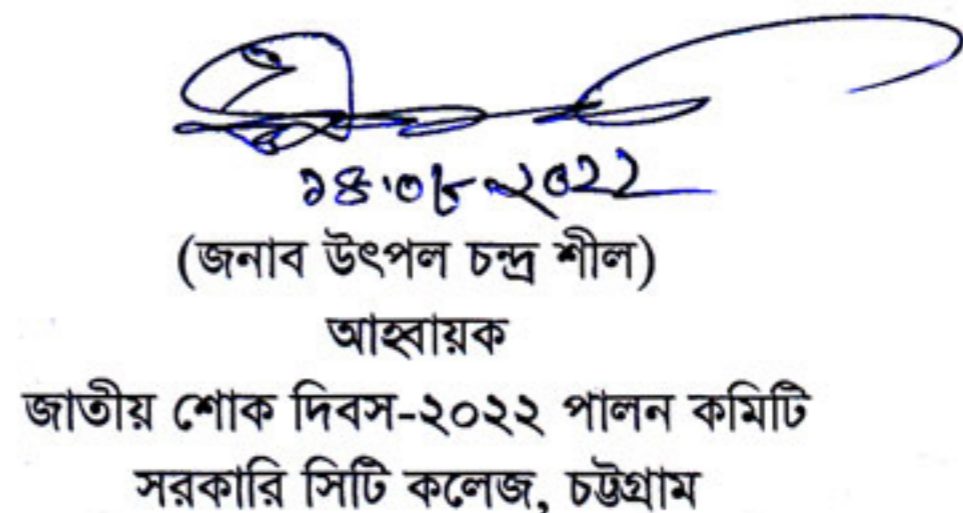 ১৪.০৮.২০২২
(জনাব উৎপল চন্দ্র শীল)
আহ্বায়ক
জাতীয় শোক দিবস-২০২২ পালন কমিটি
সরকারি সিটি কলেজ, চট্টগ্রাম